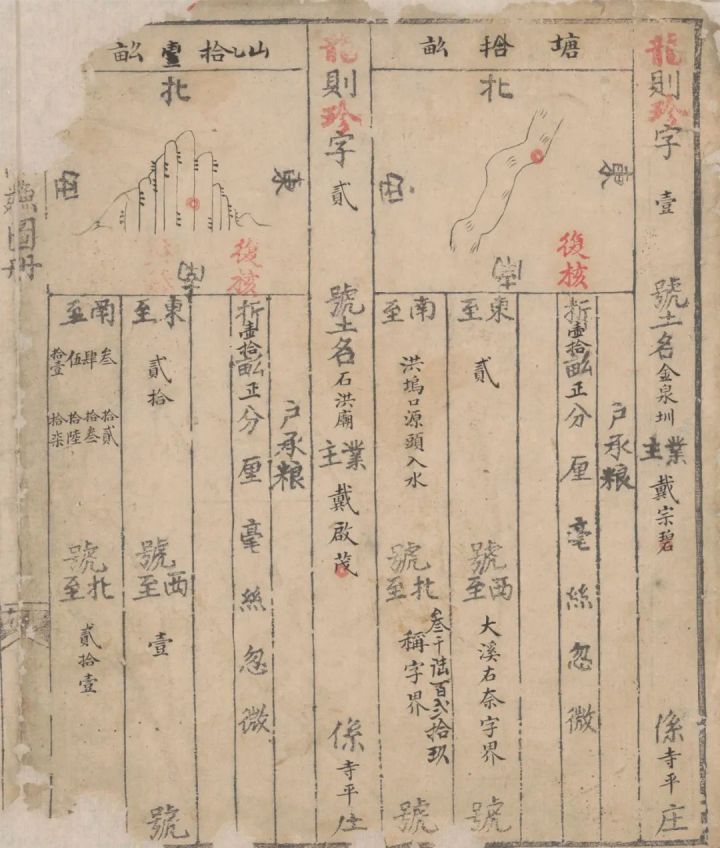 龍則珍字壹號土名金泉圳業主戴宗碧係寺平庄
塘拾畝
北
東
西
南
復核
戶承粮
折壹拾畝正分厘毫絲忽微
東至貳號
西至大溪右奈字界號
南至洪塢口源頭入水號
北至叁千陆百弍拾玖稱字界號
龍則珍字貳號土名石洪廟業主戴啟茂係寺平庄
山乙拾壹畝
北
東
西
南
復核
戶承粮
折壹拾畝正分厘毫絲忽微
東至貳拾號
西至壹號
南至叁肆伍拾壹拾貳拾叁拾陸拾柒號
北至貳拾壹
鱗圖冊